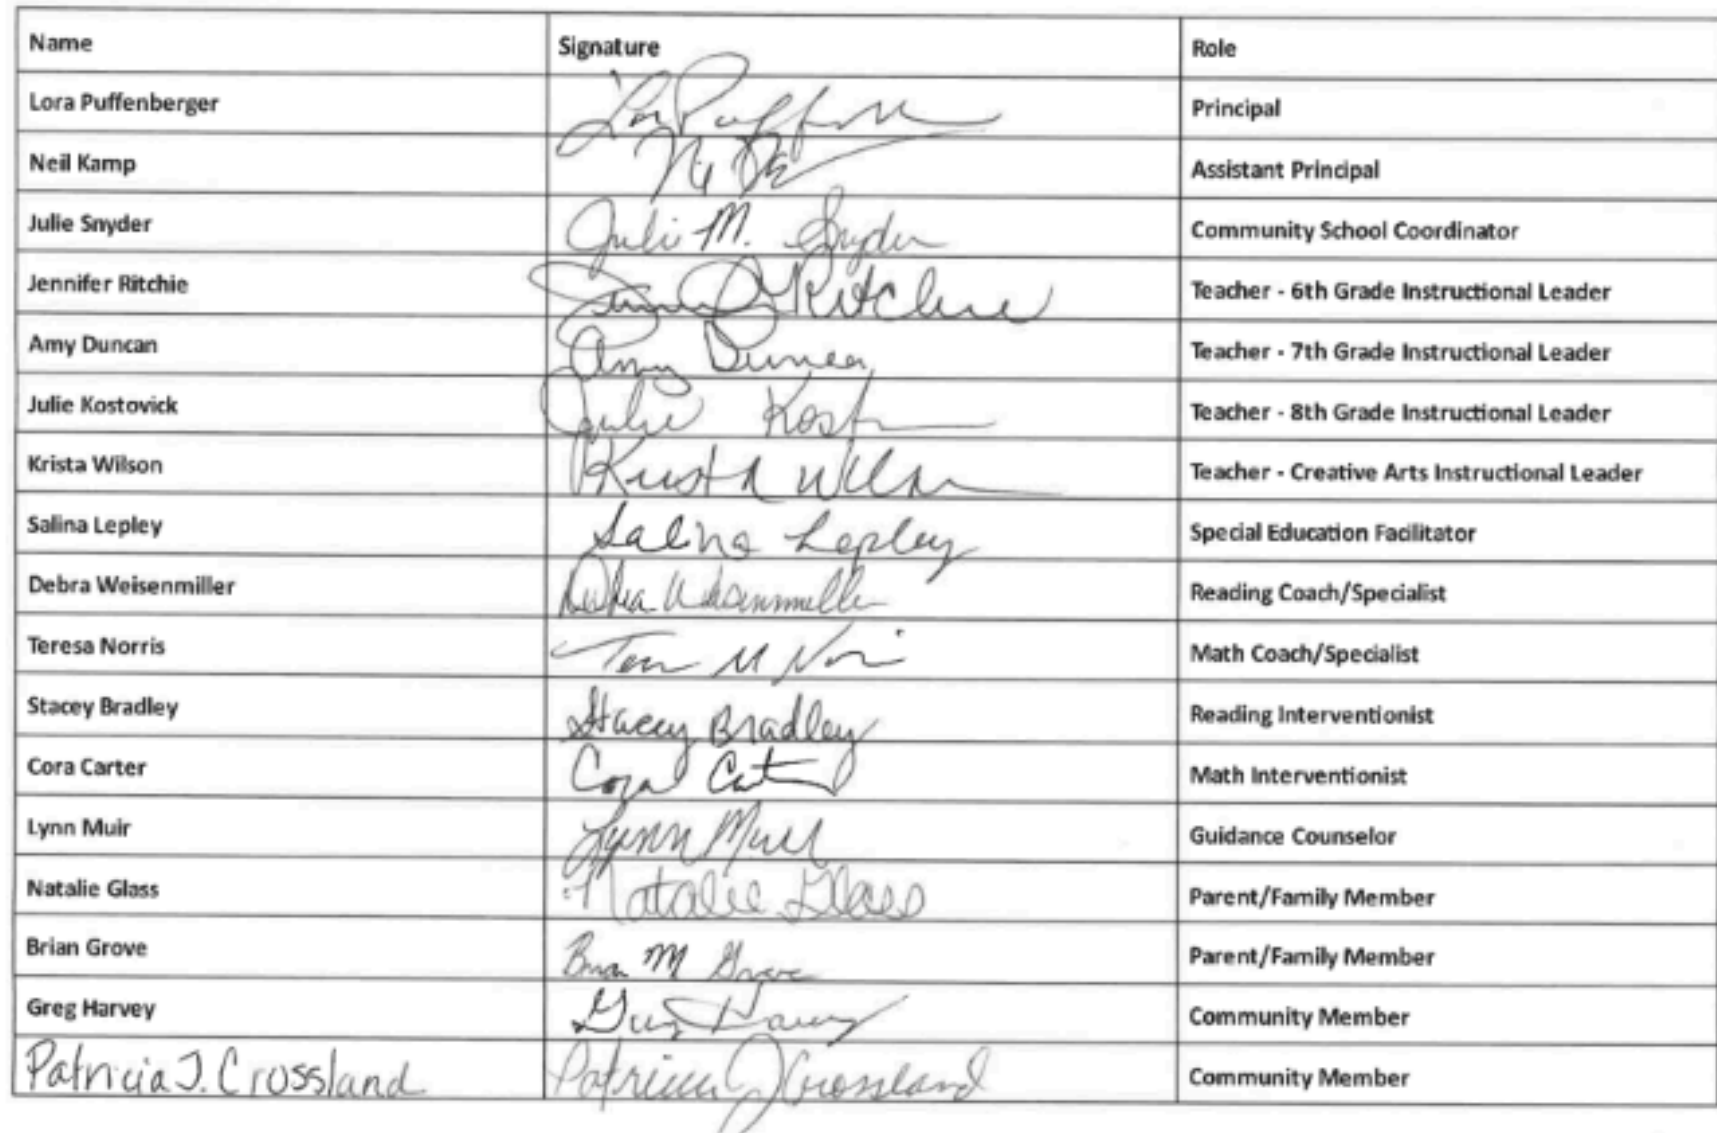 Name Signature Role
Lora Puffenberger Principal
Neil Kamp Assistant Principal
Julie Snyder Juli M. Snyder Community School Coordinator
Jennifer Ritchie Ritchie Teacher - 6th Grade Instructional Leader
Amy Duncan Amy Teacher - 7th Grade Instructional Leader
Julie Kostovick Julie Teacher - 8th Grade Instructional Leader
Krista Wilson Krista Teacher - Creative Arts Instructional Leader
Salina Lepley Salina Lepley Special Education Facilitator
Debra Weisenmiller Debra Weisenmiller Reading Coach/Specialist
Teresa Norris Math Coach/Specialist
Stacey Bradley Stacey Bradley Reading Interventionist
Cora Carter Cora Math Interventionist
Lynn Muir Lynn Muir Guidance Counselor
Natalie Glass Natalie Glass Parent/Family Member
Brian Grove Brian M Grove Parent/Family Member
Greg Harvey Greg Harvey Community Member
Patricia J. Crossland Patricia J Crossland Community Member